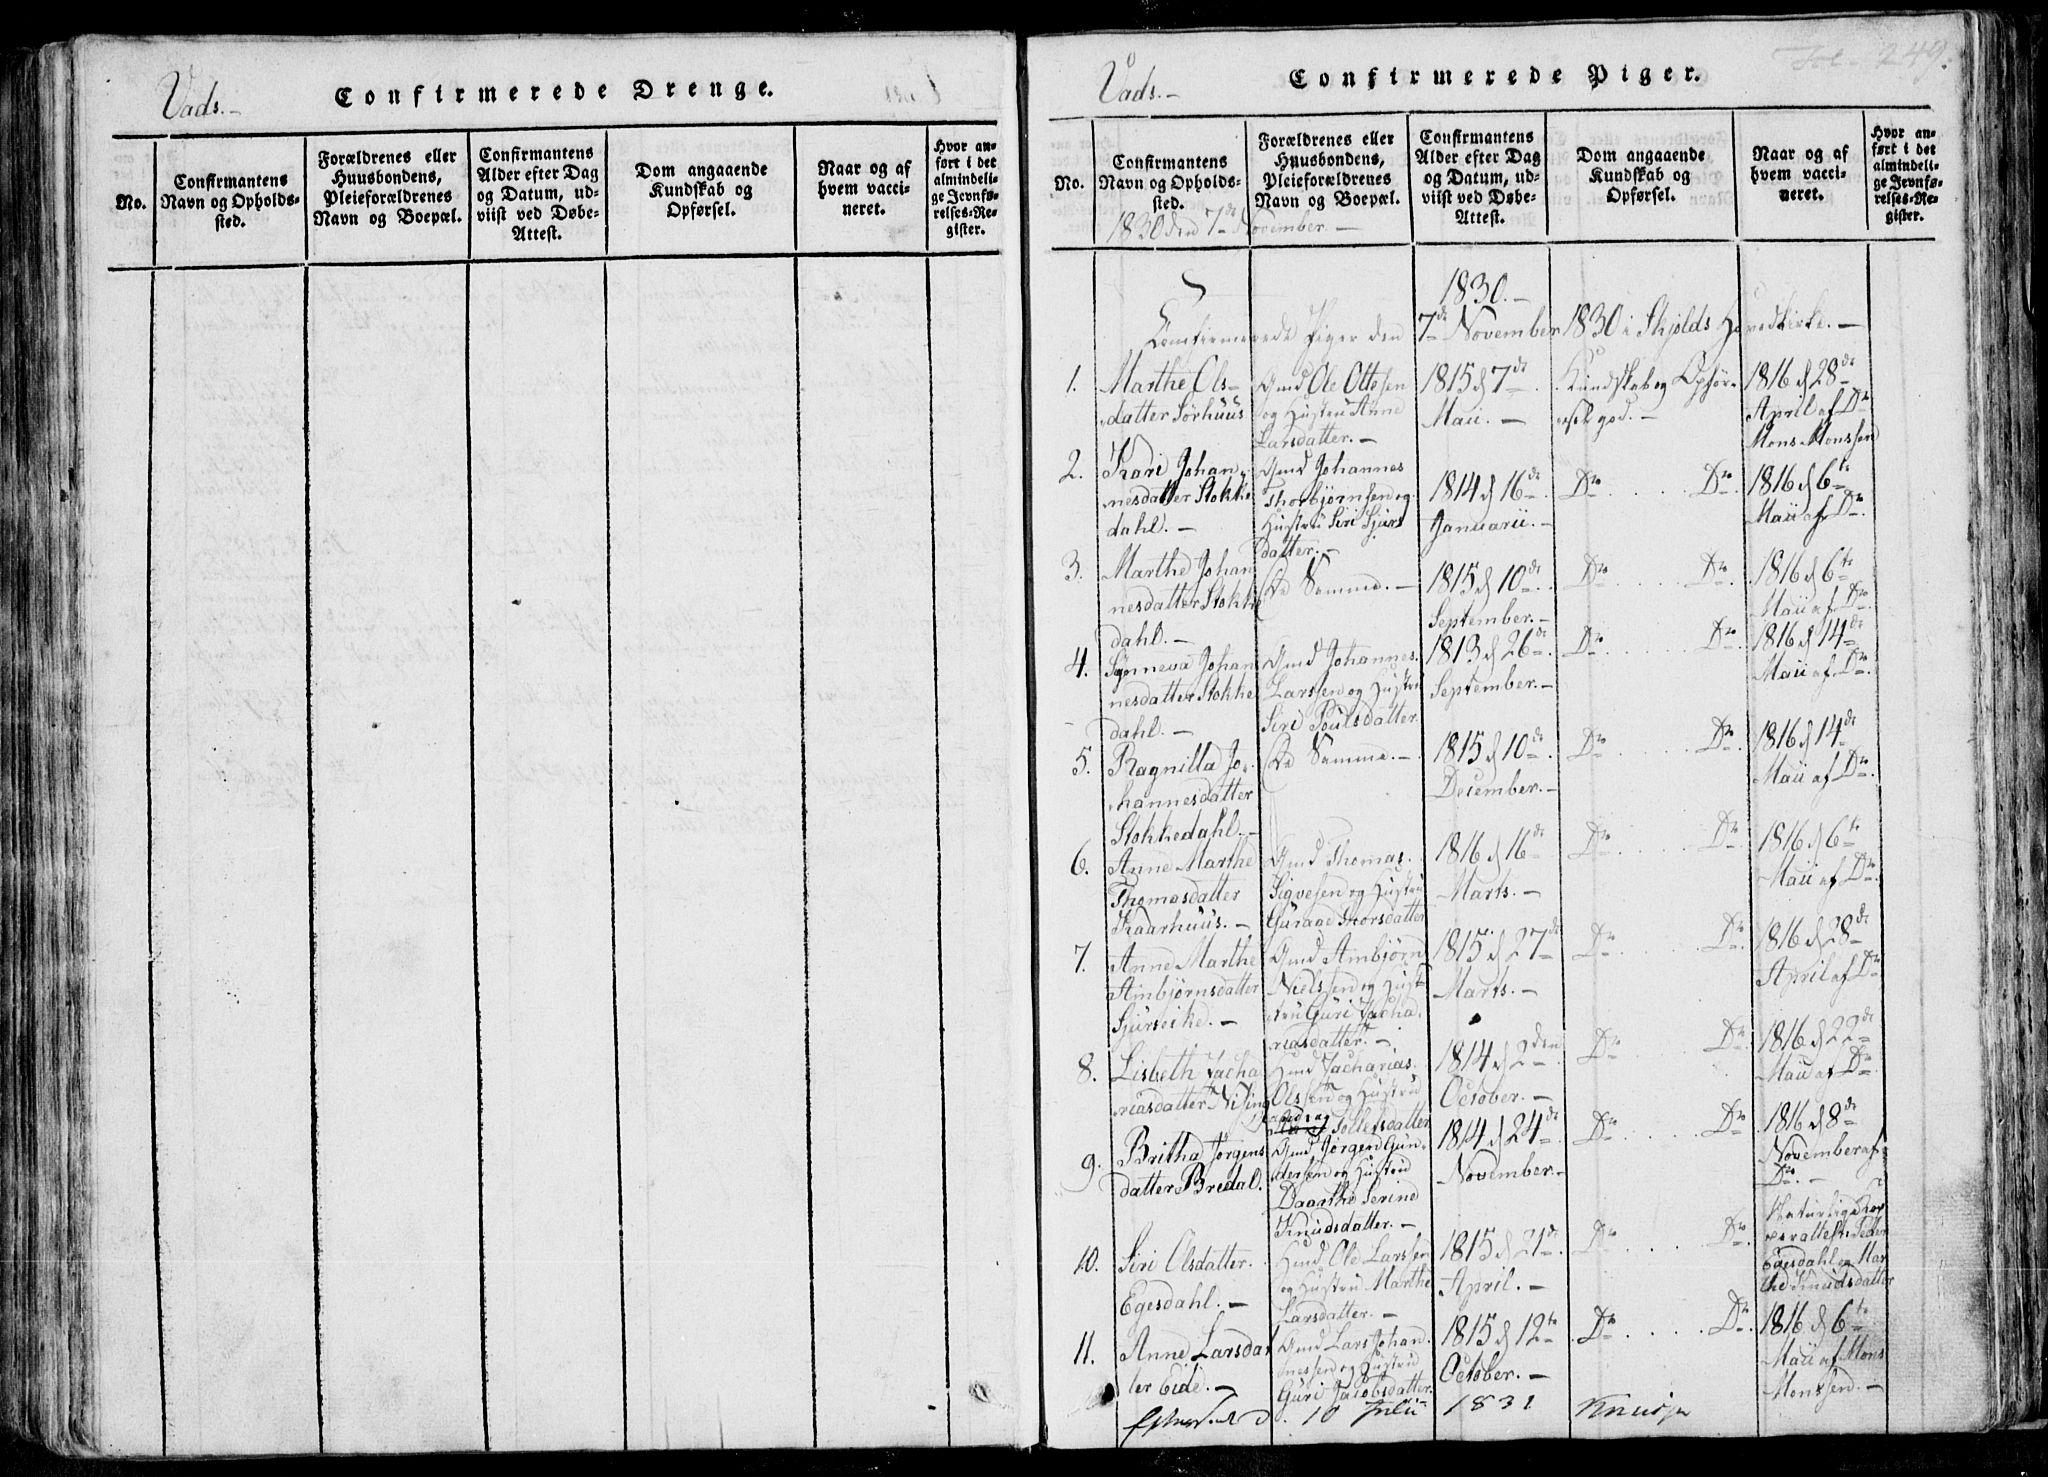 Vads.-
Confirmerede Drenge.
No.
Confirmantens
Navn og Opholds-
sted.
Forældrenes eller
Huusbondens,
Pleieforældrenes
Navn og Boepæl.
Confirmantens
Alder efter Dag
og Datum, ud-
viist ved Døbe-
Attest.
Dom angaaende
Kundskab og
Opførsel.
Naar og af
hvem vacci-
neret.
Hvor an-
ført i det
almindeli-
ge Jevnfø-
relses-Re-
gister.
Vads.-
Confirmerede Piger.
Fol. 249.
No.
Confirmantens
Navn og Opholds-
sted.
Forældrenes eller
Huusbondens,
Pleieforældrenes
Navn og Boepæl.
Confirmantens
Alder efter Dag
og Datum, ud-
viist ved Døbe-
Attest.
Dom angaaende
Kundskab og
Opførsel.
Naar og af
hvem vacci-
neret.
Hvor an-
ført i det
almindeli-
ge Jevnfø-
relses-Re-
gister.
1830 den 7de November.-
1830.-
Confirmerede Piger den 7de November 1830 i Skjolds Hovedkirke.-
1.
Marthe Ols-
datter Sørhuus
Gmd Ole Ottesen
og Hustru Anne
Larsdatter.-
1815 d 7de
Maii.-
Kundskab og Opfør-
sel god.-
1816 d 28de
April af Dr
Mons Monssen
2.
Kari Johan-
nesdatter Stokke
dahl.-
Gmd Johannes
Thorbjørnsen og
Hustru Siri Sjurs
datter.-
1814 d 16de
Januarii.-
Do . . . . Do
1816 d 6te
Maii af Do.
3.
Marthe Johan
nesdatter Stokke
dahl.-
De Samme.-
1815 d 10de
September.-
Do . . . . Do
1816 d 6te
Maii af Do.
4.
Synneva Johan
nesdatter Stokke
dahl.-
Gmd Johannes
Larssen og Hustru
Siri Poulsdatter
1813 d 26de
September.-
Do . . . . Do
1816 d 14de
Maii af Do.
5.
Ragnilla Jo-
hannesdatter
Stokkedahl.-
De Samme.-
1815 d 10de
December.-
Do . . . . Do.
1816 d 14de
Maii af Do.
6.
Anne Marthe
Thomasdatter
Kaarhuus.-
Gmd Thomas
Sigvesen og Hustru
Thorsdatter
1816 d 16de
Marts.-
Do . . . . Do
1816 d 6te
Maii af Do.
7.
Anne Marthe
Ambjørnsdatter
Sjurseike.-
Gmd Ambjørn
Nielssen og Hust-
ru Guri Zacha-
riasdatter.-
1815 d 27de
Marts.-
Do . . . . Do.
1816 d 28de
April af Do
8.
Lisbeth Zacha
riasdatter
Zacharias
Olssen og Hustru
Tollefsdatter
1814 d 2den
October.-
Do . . . . Do.
1816 d 22de
Maii af Do
9.
Britha Jørgens
datter Bredal.
Gmd Jørgen Gun-
dersen og Hustru
Daarthe Serine
Knudsdatter.-
1814 d 24de
November.-
Do . . . . Do.
1816 d 8de
November af
Do.-
10.
Siri Olsdatter
Egesdahl.-
Ole Larssen
og Hustru Marthe
Larsdatter.-
1815 d 21de
April.-
Do . . . . Do.
Naturlige Kop
per attest. Peder
Egesdahl og Mar
the Knudsdatter
11.
Anne Larsdat
ter Eide.-
Gmd Lars Johan-
nessen og Hustru
Guri Jacobsdatter.
1815 d 12te
October.-
Do . . . . Do.
1816 d 6te
Maii af Mons
Monssen.-
10 Julii 1831